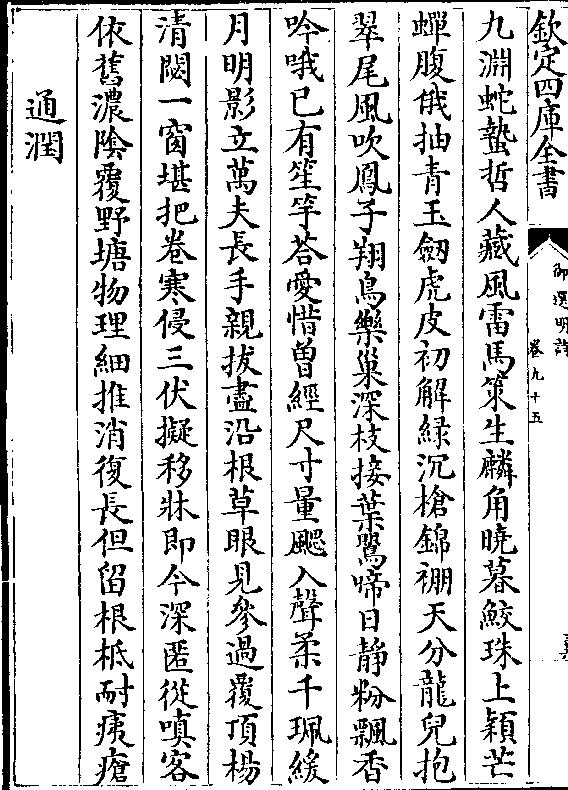 欽定四庫全書
御選明詩
卷九十五
九淵蛇蟄哲人藏風雷馬策生麟角曉暮鮫珠上穎芒
蟬腹俄抽青玉劔虎皮初解緑沉槍錦裯天分龍兒抱
翠尾風吹鳳子翔鳥樂巢深枝接葉鶯啼日静粉飄香
吟哦已有笙竽荅愛惜曽經尺寸量颸入聲柔千珮緩
月明影立萬夫長手親拔盡沿根草眼見參過覆頂楊
清閟一窗堪把卷寒侵三伏擬移牀即今深匿從嗔客
依舊濃隂覆野塘物理細推消復長但留根柢耐痍瘡
通潤